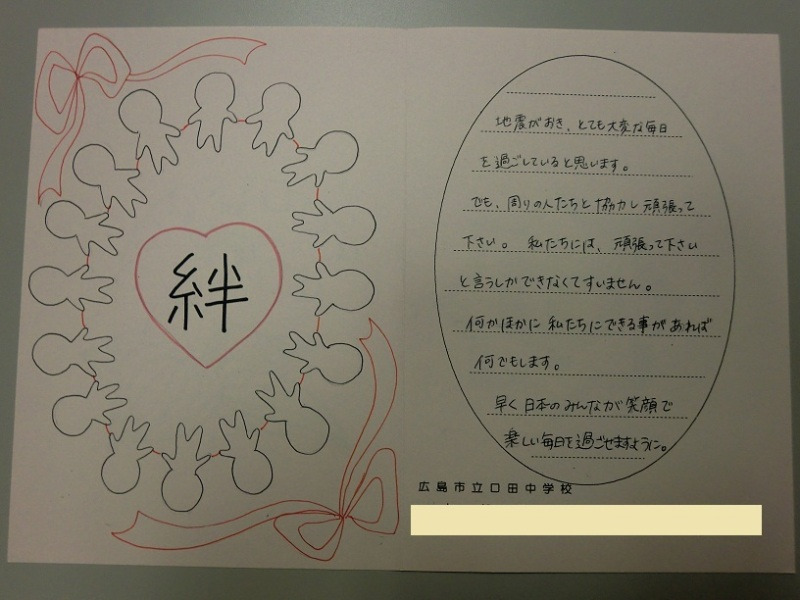 絆
地震がおき、とても大変な毎日
を過ごしていると思います。
でも、周りの人たちと協力し頑張って
下さい。私たちには、頑張って下さい
と言うしかできなくてすいません。
何かほかに私たちにできる事があれば
何でもします。
早く日本のみんなが笑顔で
楽しい毎日を過ごせますように。
広島市立口田中学校